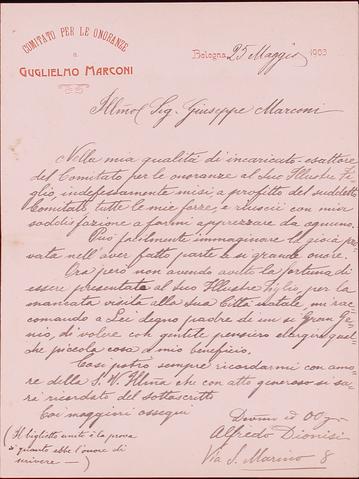 COMITATO PER LE ONORANZE
a
GUGLIELMO MARCONI
Bologna, 25 Maggio 1903
Illmo Sig. Giuseppe Marconi
Nella mia qualità di incaricato-esattore
del Comitato per le onoranze al Suo Illustre Fi-
glio, indefessamente misi a profitto del suddetto
Comitato tutte le mie forze, e riuscii con mia
soddisfazione a farmi apprezzare da ognuno.
Può facilmente immaginare la gioia pro-
vata nell'aver fatto parte a sì grande onore.
Ora però non avendo avuto la fortuna di
essere presentato al Suo Illustre Figlio, per la
mancata visita alla Sua Città natale mi rac-
comando a Lei degno padre di un sì Gran Ge-
nio, di volere con gentile pensiero elargirmi qual-
che piccola cosa a mio beneficio.
Così potrò sempre ricordarmi con amo-
re della S. V. Illma che con atto generoso si sa-
rà ricordato del sottoscritto
Coi maggiori ossequi
Alfredo Dionisi
Via S. Marino 8
(Il biglietto unito è la prova
di quanto ebbe l'onore di
scrivere —)